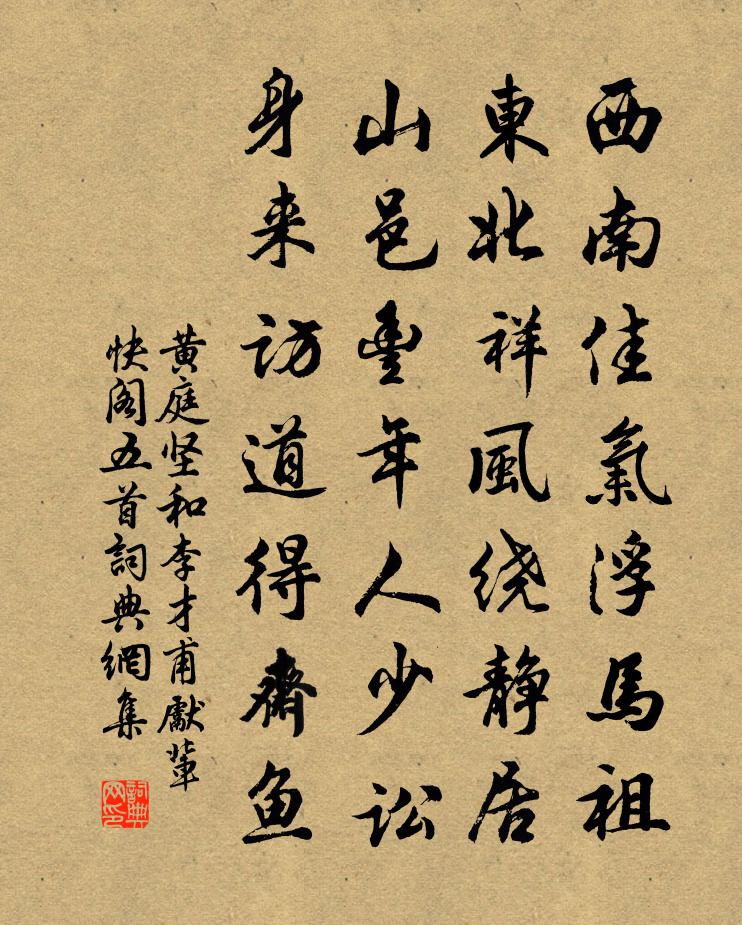 西南佳氣浮馬祖
東北祥風绕静居
山邑豐年人少訟
身来訪道得齋魚
黄庭坚和李才甫獻輩
快阁五首詞典網集
詞典网印